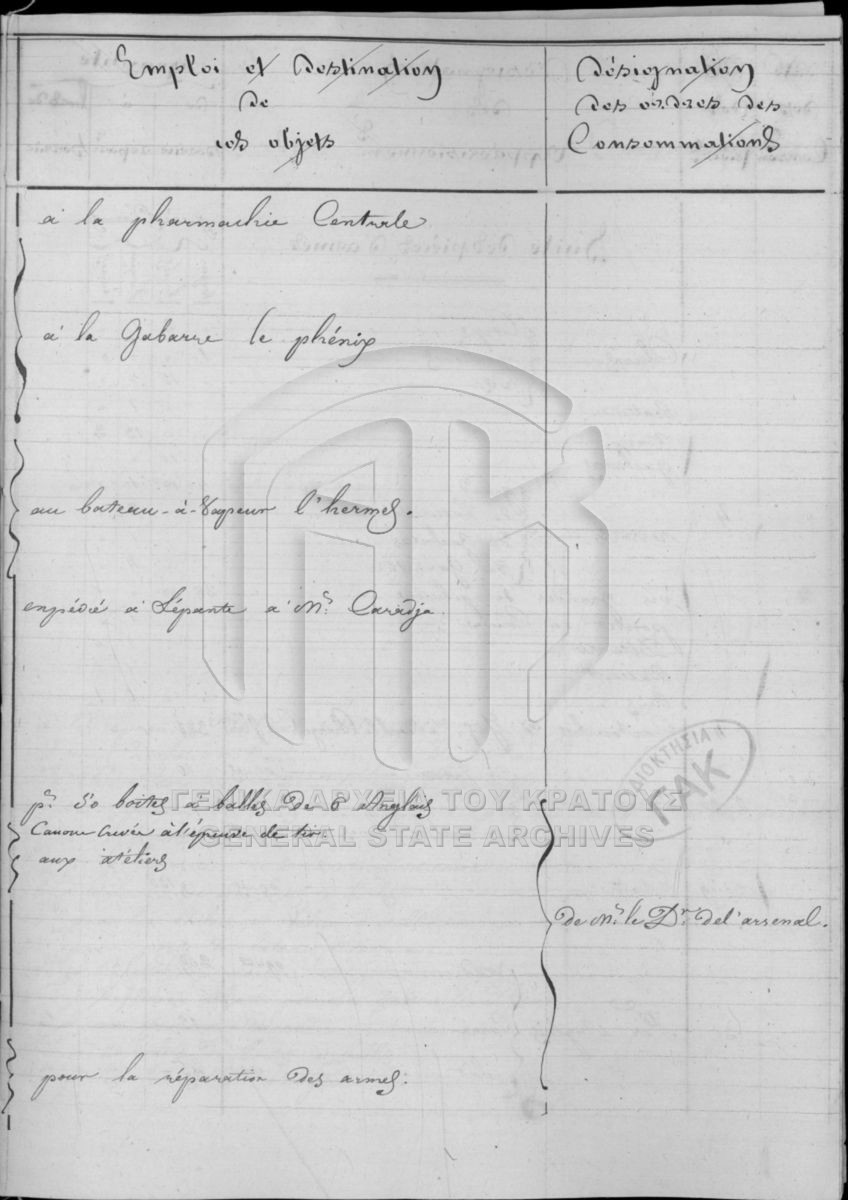 Emploi et destination
de
ces objets
Désignation
des ordres des
Consommations
à la pharmachie Centrale
à la Gabarre le phénix
au bateau-à-Vapeur l'hermes.
expédié à Lépante à Mr. Caradja
pr. 50 boites a balles de 6 Anglais
Canon crevée à l'épreuve de tir.
aux atéliers
de Mr. le Dr. de l'arsenal.
pour la réparation des armes.
ΓΕΝΙΚΑ ΑΡΧΕΙΑ ΤΟΥ ΚΡΑΤΟΥΣ
GENERAL STATE ARCHIVES
ΙΔΙΟΚΤΗΣΙΑ
ΓΑΚ